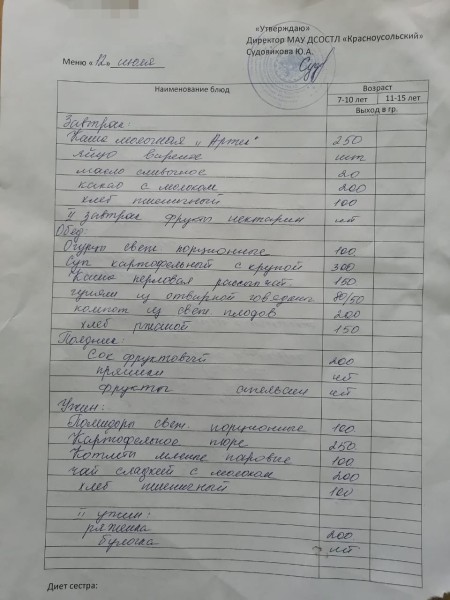 «Утверждаю»
Директор МАУ ДСОСТЛ «Красноусольский»
Судовикова Ю.А.
Меню « 12 » июля
Наименование блюд Возраст
7-10 лет 11-15 лет
Выход в гр.
Завтрак:
Каша молочная "Артек" 250
яйцо вареное шт
масло сливочное 20
какао с молоком 200
хлеб пшеничный 100
II завтрак фрукты нектарин шт
Обед:
Огурцы свеж порционные 100
Суп картофельный с крупой 300
Каша перловая рассыпчат 150
гуляш из отварной говядины 80/50
компот из свеж плодов 200
хлеб ржаной 150
Полдник:
Сок фруктовый 200
пряники шт
фрукты апельсин шт
Ужин:
Помидоры свеж. порционные 100
Картофельное пюре 250
Котлеты мясные паровые 100
чай сладкий с молоком 200
хлеб пшеничный 100
II ужин:
ряженка 200
булочка шт
Диет сестра: